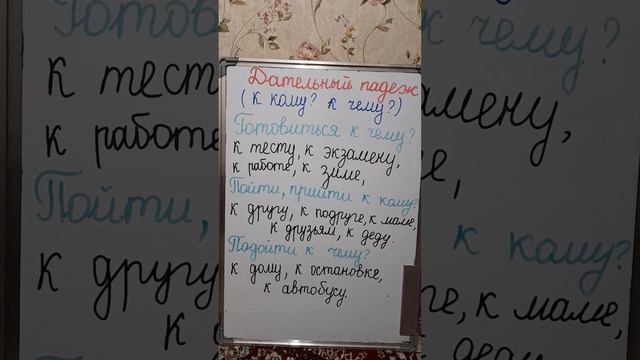 Дательный падеж
(к кому? к чему?)
Готовиться к чему?
к тесту, к экзамену,
к работе, к зиме,
Пойти, прийти к кому?
к другу, к подруге, к маме,
к друзьям, к деду.
Подойти к чему?
к дому, к остановке,
к автобусу.